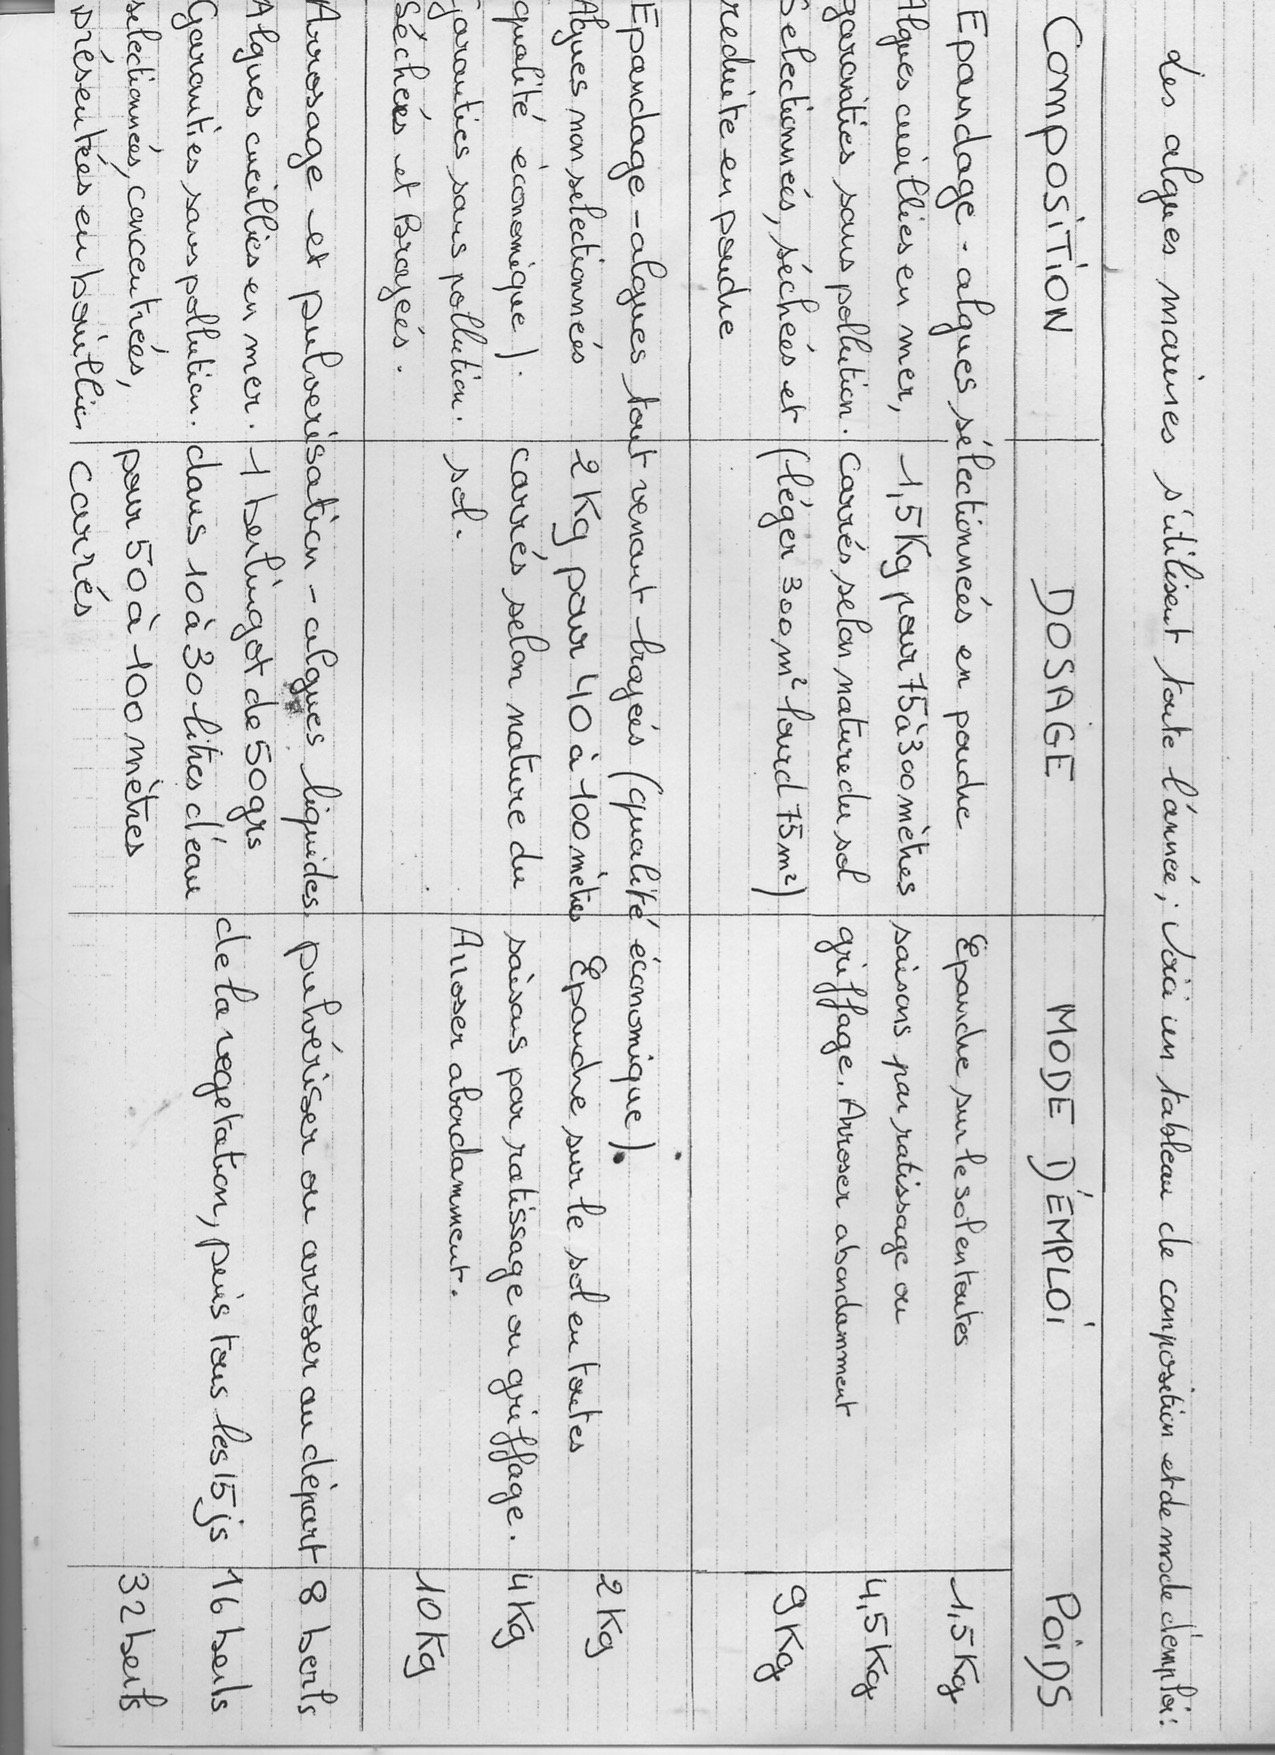 Les algues marines s'utilisent toute l'année; Voici un tableau de composition et de mode d'emploi:
COMPOSITION DOSAGE MODE D'EMPLOI POIDS
Epandage - algues sélectionnées en poudre Epandre sur le sol en toutes 1,5 Kg
Algues cueillies en mer, 1,5 Kg pour 75 à 300 mètres saisons par ratissage ou 4,5 Kg
garanties sans pollution. carrés selon nature du sol griffage. Arroser abondamment
Selectionnées, séchées et (léger 300 m² lourd 75 m²) 9 Kg
reduite en poudre
Epandage - algues tout venant broyées (qualité économique).
Algues non selectionnées 2 Kg pour 40 à 100 mètres Epandre sur le sol en toutes 2 Kg
qualité économique). carrés selon nature du saisons par ratissage ou griffage. 4 Kg
garanties sans pollution. sol. Arroser abondamment.
Séchées et Broyées. 10 Kg
Arrosage et pulverisation - algues liquides. pulvériser ou arroser au départ 8 berls
Algues cueillies en mer. 1 berlingot de 50 grs de la vegetation, puis tous les 15 js 16 berls
Garanties sans pollution. dans 10 à 30 litres d'eau
selectionnées, concentrées, pour 50 à 100 mètres 32 berls
présentées en bouillie carrés